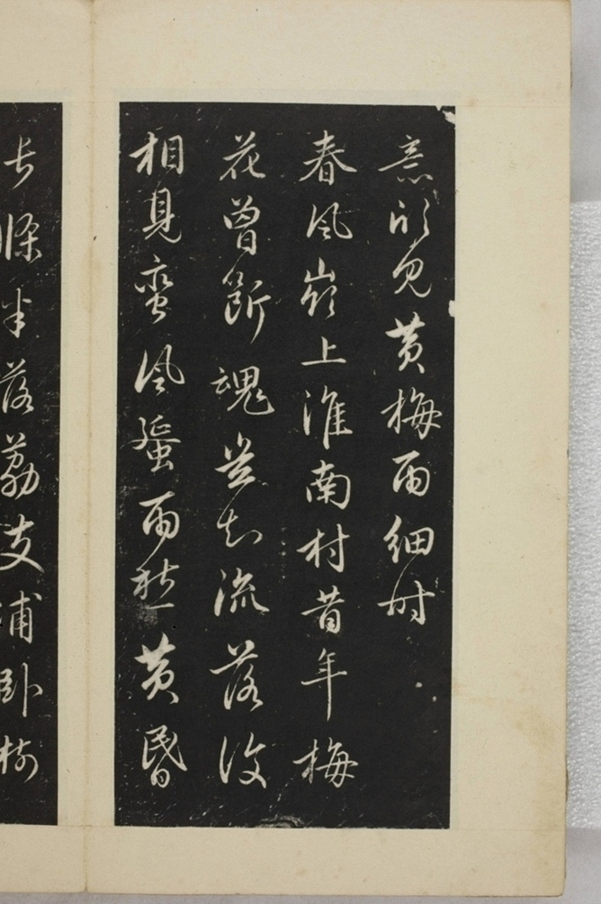 意怕見黃梅雨細時
春風嶺上淮南村昔年梅
花曾斷魂豈知流落復
相見蠻風蜑雨愁黃昏
長條半落荔支浦臥樹